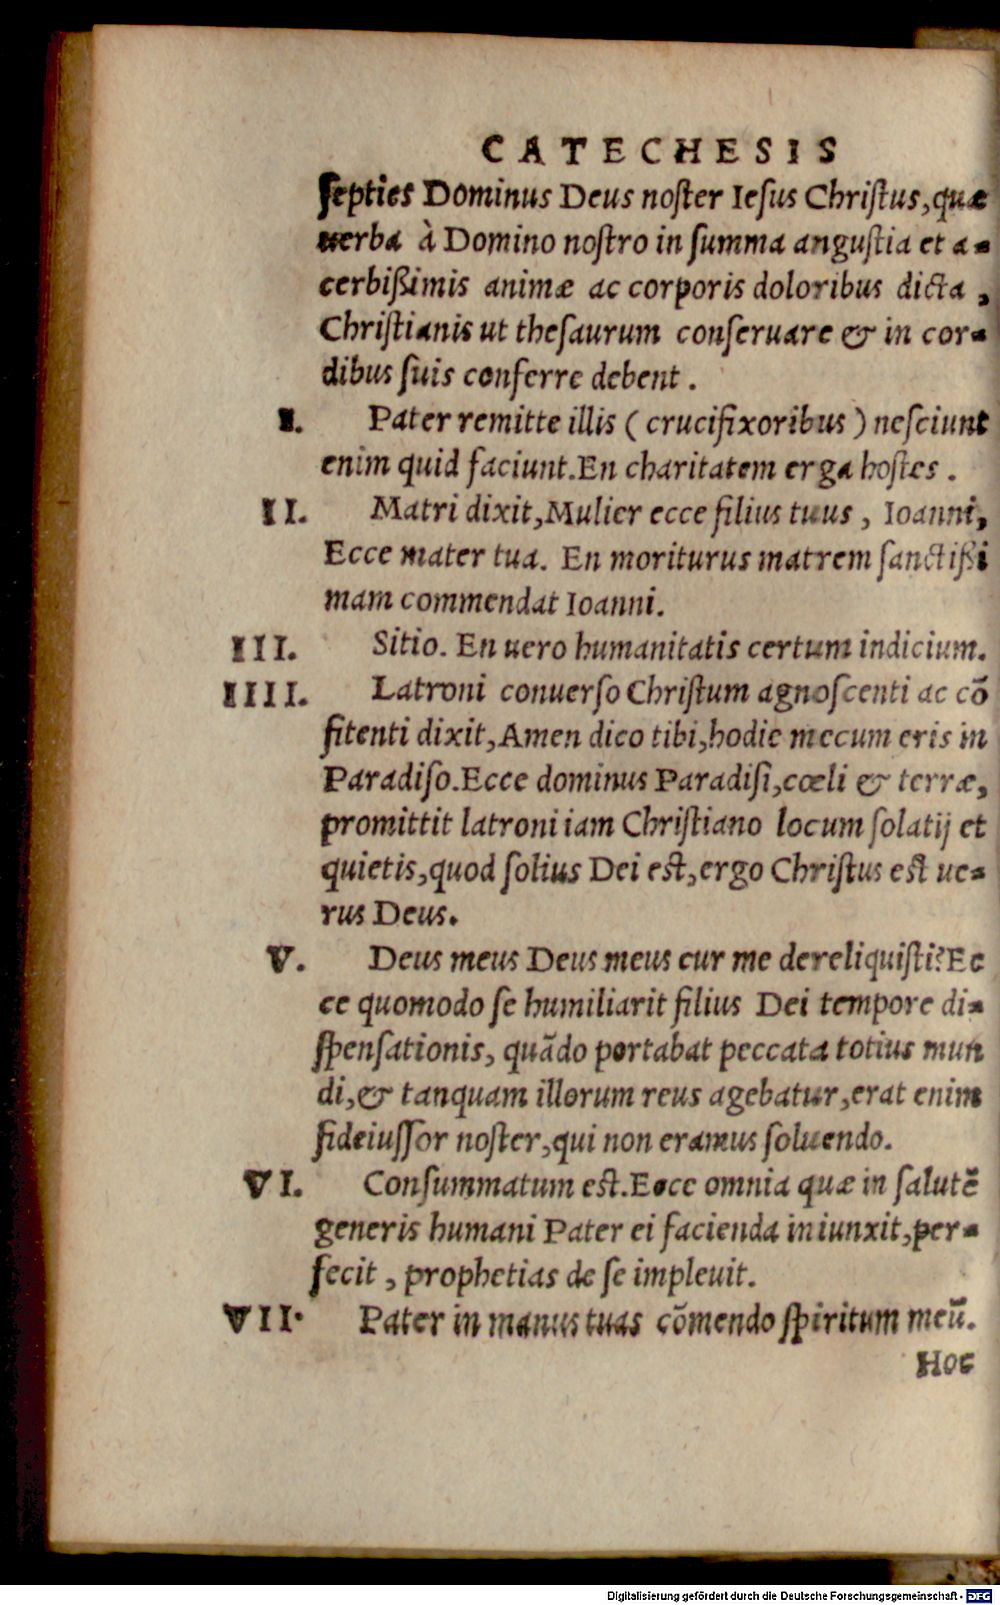 CATECHESIS
ſepties Dominus Deus noſter Ieſus Chriſtus, quæ
uerba à Domino noſtro in ſumma anguſtia et a-
cerbißimis animæ ac corporis doloribus dicta ,
Chriſtianis ut theſaurum conſeruare & in cor-
dibus ſuis conferre debent .
I. Pater remitte illis ( crucifixoribus ) neſciunt
enim quid faciunt. En charitatem erga hoſtes .
II. Matri dixit, Mulier ecce filius tuus , Ioanni,
Ecce mater tua. En moriturus matrem ſanctißi
mam commendat Ioanni.
III. Sitio. En uero humanitatis certum indicium.
IIII. Latroni conuerſo Chriſtum agnoſcenti ac cõ
fitenti dixit, Amen dico tibi, hodie mecum eris in
Paradiſo. Ecce dominus Paradiſi, cœli & terræ,
promittit latroni iam Chriſtiano locum ſolatij et
quietis, quod ſolius Dei eſt, ergo Chriſtus eſt ue-
rus Deus.
V. Deus meus Deus meus cur me dereliquiſti? Ec
ce quomodo ſe humiliarit filius Dei tempore di-
ſpenſationis, quãdo portabat peccata totius mun
di, & tanquam illorum reus agebatur, erat enim
fideiuſſor noſter, qui non eramus ſoluendo.
VI. Conſummatum eſt. Ecce omnia quæ in ſalutẽ
generis humani Pater ei facienda iniunxit, per-
fecit , prophetias de ſe impleuit.
VII. Pater in manus tuas cõmendo ſpiritum meũ.
Hoc
Digitalisierung gefördert durch die Deutsche Forschungsgemeinschaft - DFG